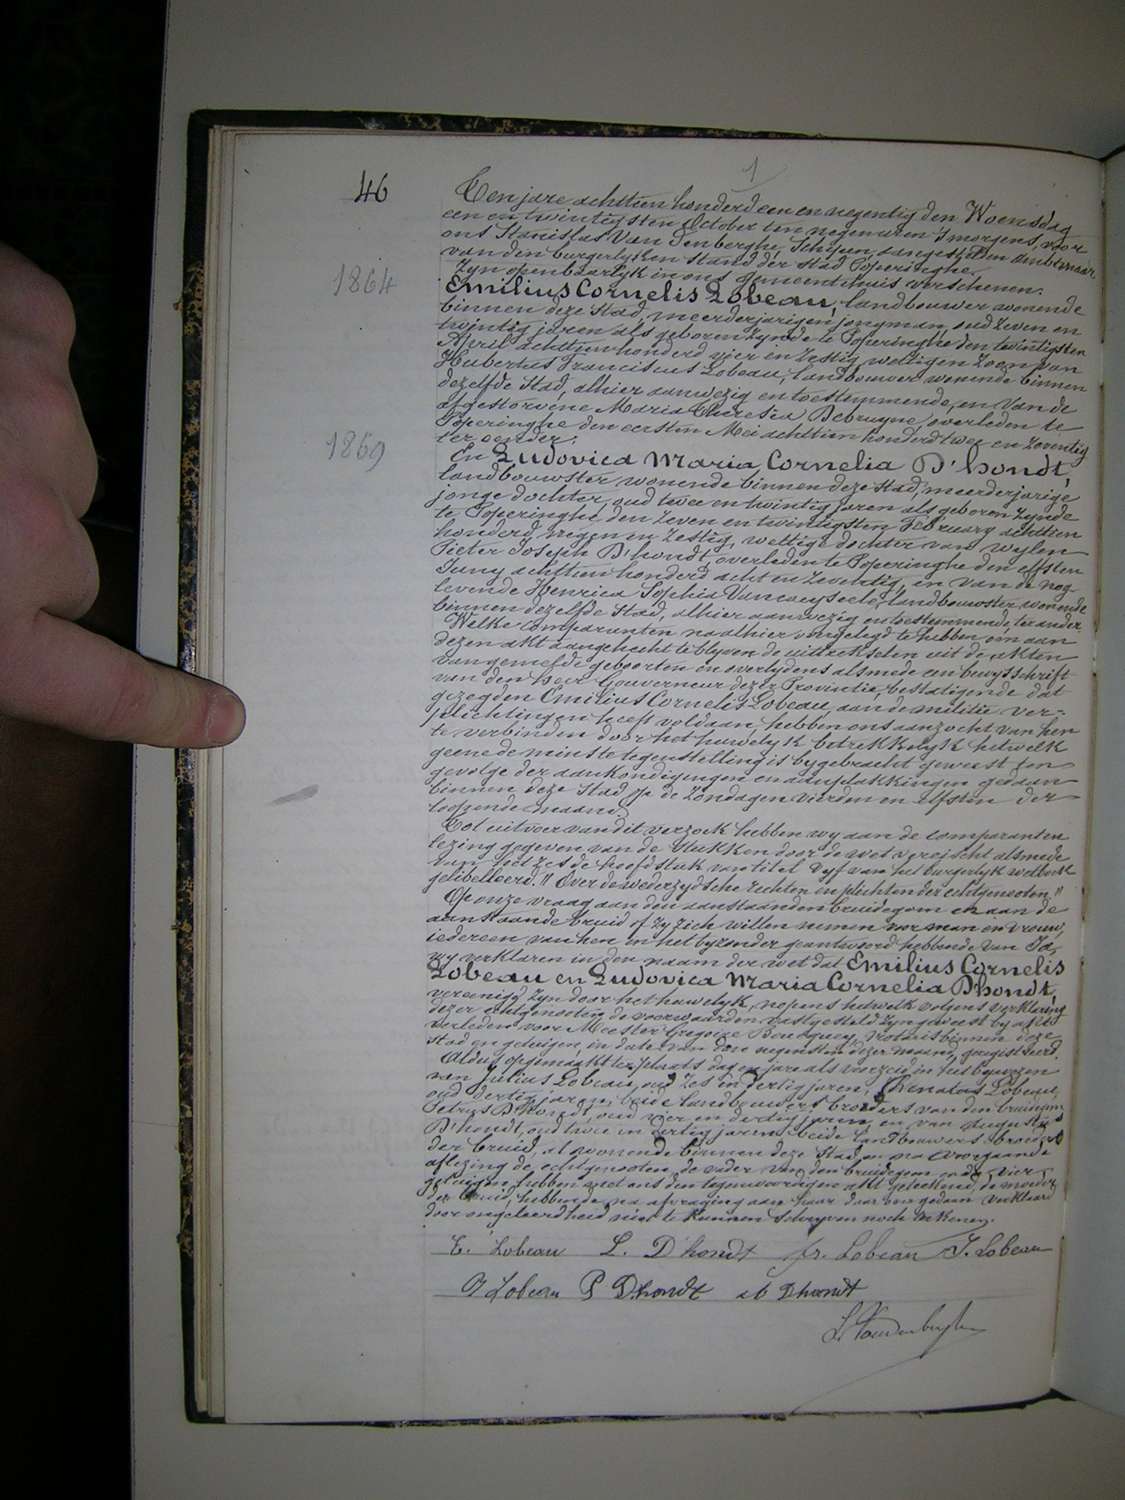 1
46
Ten jare achttien honderd een en negentig den Woensdag
een en twintigsten October ten negen uren 's morgens, voor
ons Stanislas Van Tenberghe, Schepen, aangestelden Ambtenaar
van den burgerlyken stand der stad Poperinghe
Zyn openbaarlyk in ons gemeentehuis verschenen:
1864
Emilius Cornelis Lobeau, landbouwer wonende
binnen deze stad, meerderjarigen jongman, oud zeven en
twintig jaren als geboren zynde te Poperinghe den twintigsten
April achttien honderd vier en zestig, wettigen zoon van
Hubertus Franciscus Lobeau, landbouwer wonende binnen
dezelfde stad, alhier aanwezig en toestemmende, en van de
afgestorvene Maria Theresia Debruyne overleden te
Poperinghe den eersten Mei achttien honderd twee en zeventig
ter eender;
1869
En Ludovica Maria Cornelia D'hondt,
landbouwster wonende binnen deze stad, meerderjarige
jonge dochter, oud twee en twintig jaren als geboren zynde
te Poperinghe den zeven en twintigsten February achttien
honderd negen en zestig, wettige dochter van wylen
Pieter Joseph D'hondt, overleden te Poperinghe den elfsten
Juny achttien honderd acht en zeventig, en van de nog
levende Henrica Sophia Vancayseele, landbouwster, wonende
binnen dezelfde stad, alhier aanwezig en toestemmende, ter ander.
Welke comparanten na alhier overgelegd te hebben om aan
dezen akt aangehecht te blyven de uittreksels uit de akten
van gemelde geboorten en overlydens alsmede een bewysschrift
van den Heer Gouverneur dezer Provintie, bestatigende dat
gezegden Emilius Cornelis Lobeau, aan de militie ver-
plichtingen heeft voldaan, hebben ons aanzocht van hen
te verbinden door het huwelyk betrekkelyk hetwelk
geene de minste tegenstelling is bygebracht geweest ten
gevolge der aankondigingen en aanplakkingen gedaan
binnen deze stad op de Zondagen vierden en elfsten der
loopende maand.
Tot uitvoer van dit verzoek hebben wy aan de comparanten
lezing gegeven van de stukken door de wet vereischt alsmede
van het zesde hoofdstuk van titel vyf van het burgerlyk wetboek
gelibelleerd: "Over de wederzydsche rechten en plichten der echtgenooten."
Op onze vraag aan den aanstaanden bruidegom en aan de
aanstaande bruid of zy zich willen nemen voor man en vrouw,
iedereen van hen in het byzonder geantwoord hebbende van Ja,
wy verklaren in den naam der wet dat Emilius Cornelis
Lobeau en Ludovica Maria Cornelia D'hondt,
vereenigd zyn door het huwelyk, nopens hetwelk volgens verklaring
dezer echtgenooten de voorwaarden vastgesteld zyn geweest by akt
verleden voor Meester Gregoire Boucquey, notaris binnen deze
stad en getuigen, in date van den negensten dezer maand, geregistreerd.
Aldus opgemaakt ter plaats dag en jare als voorzeid in het bywezen
van Julius Lobeau, oud zes en dertig jaren, Renatus Lobeau,
oud dertig jaren, beide landbouwers broeders van den bruidegom
Petrus D'hondt, oud vier en dertig jaren, en van Augustus
D'hondt, oud twee en dertig jaren beide landbouwers broeders
der bruid, al wonende binnen deze stad en na voorgaande
aflezing de echtgenooten, de vader van den bruidegom en de vier
getuigen hebben met ons den tegenwoordigen akt geteekend, de moeder
der bruid, hebbende na afvraging aan haar door ons gedaan verklaard
door ongeleerdheid niet te kunnen schryven noch teekenen.
E. Lobeau L. D'hondt fr. Lobeau J. Lobeau
R Lobeau P Dhondt A Dhondt